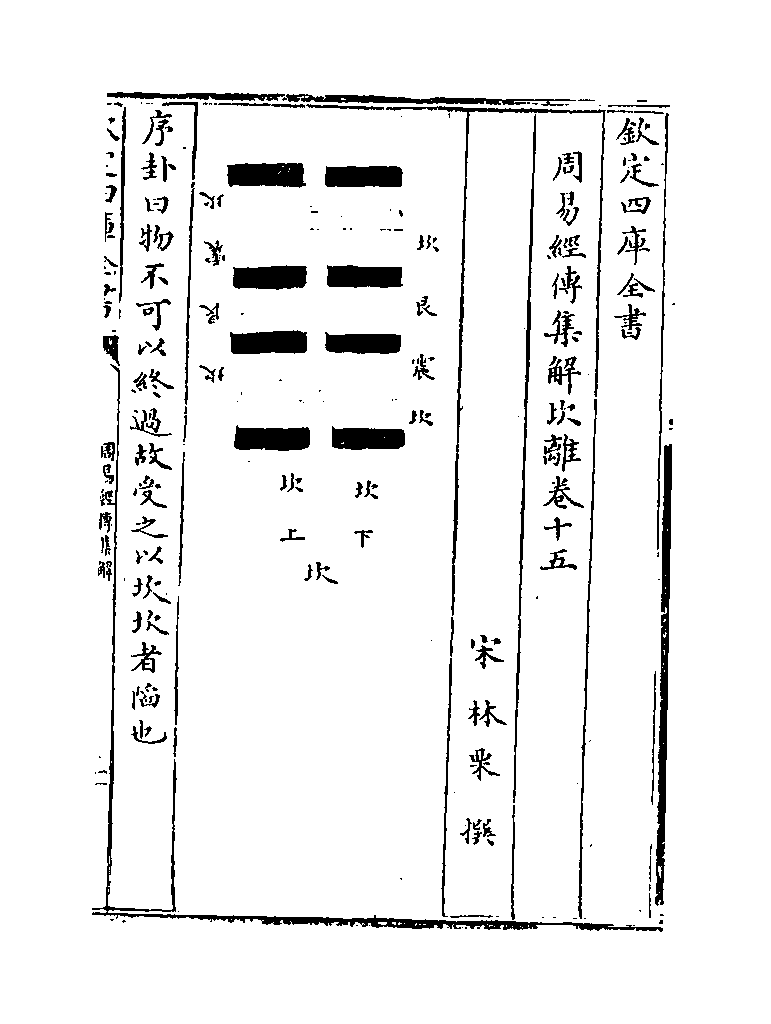 欽定四庫全書
周易經傳集解坎離卷十五
宋林栗撰
坎
艮
震
坎
坎下
坎上
坎
坎
震
艮
坎
序卦曰物不可以終過故受之以坎坎者陷也
周易經傳集解